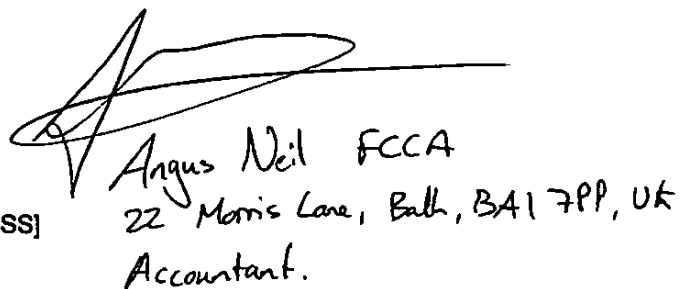 Angus Neil FCCA
SS] 22 Morris Lane, Bath, BA1 7PP, UK
Accountant.